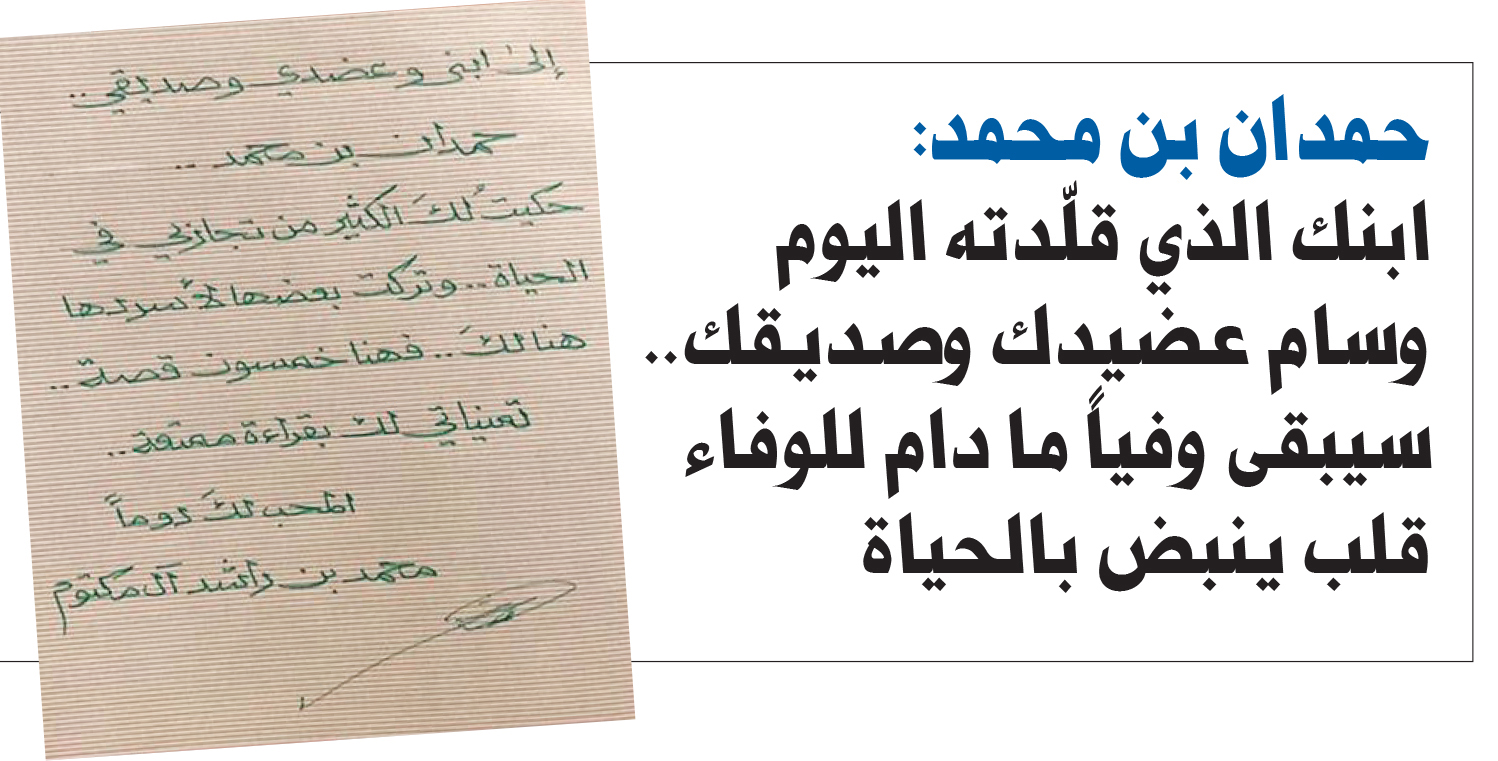 حمدان بن محمد:
ابنك الذي قلّدته اليوم
وسام عضيدك وصديقك..
سيبقى وفياً ما دام للوفاء
قلب ينبض بالحياة
إلى ابني وعضدي وصديقي..
حمدان بن محمد..
حكيتُ لكَ الكثير من تجاربي في
الحياة.. وتركت بعضها لأسردها
هنا لكَ.. فهنا خمسون قصة..
تمنياتي لك بقراءة ممتعة..
المحب لكَ دوماً
محمد بن راشد آل مكتوم